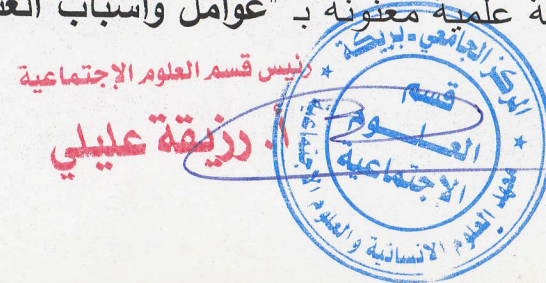 علمية معنونة بـ "عوامل وأسباب
رئيس قسم العلوم الإجتماعية
أ. رزيقة عليلي
المركز الجامعي - بريكة
قسم
العلوم
الاجتماعية
معهد العلوم الانسانية والعلوم الاجتماعية